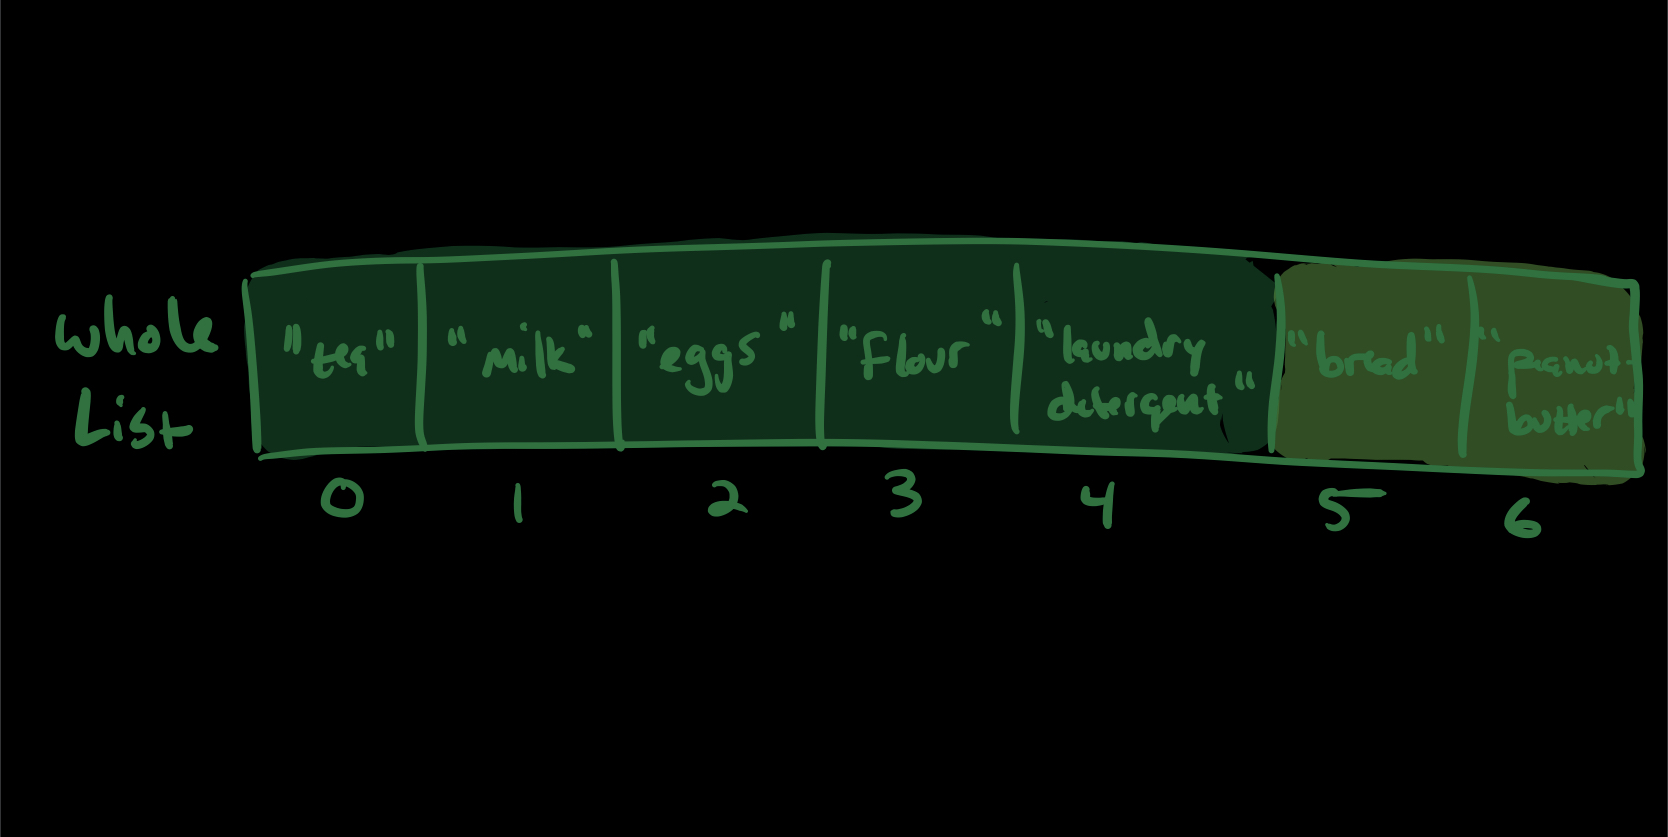 whole
List
"tea" "milk" "eggs" "flour" "laundry detergent" "bread" "peanut butter"
0 1 2 3 4 5 6